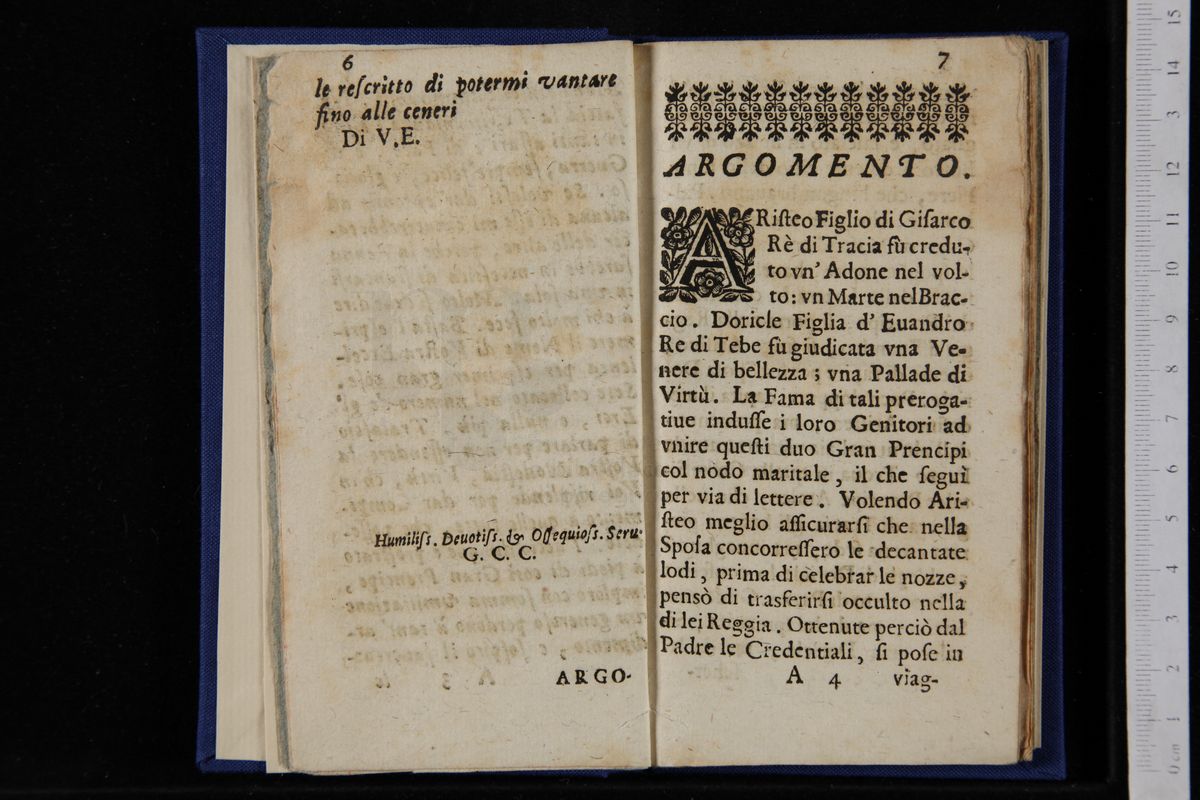 6
le reſcritto di potermi vantare
fino alle ceneri
Di V.E.
Humiliſs. Deuotiſs. & Oſſequioſs. Seru.
G. C. C.
ARGO-
7
ARGOMENTO.
ARiſteo Figlio di Giſarco
Rè di Tracia fù credu-
to vn' Adone nel vol-
to: vn Marte nel Brac-
cio. Doricle Figlia d' Euandro
Re di Tebe fù giudicata vna Ve-
nere di bellezza; vna Pallade di
Virtù. La Fama di tali preroga-
tiue induſſe i loro Genitori ad
vnire queſti duo Gran Prencipi
col nodo maritale, il che ſeguì
per via di lettere. Volendo Ari-
ſteo meglio aſſicurarſi che nella
Spoſa concorreſſero le decantate
lodi, prima di celebrar le nozze,
pensò di trasferirſi occulto nella
di lei Reggia. Ottenute perciò dal
Padre le Credentiali, ſi poſe in
A 4 viag-
15
14
13
12
11
10
9
8
7
6
5
4
3
2
1
0 cm